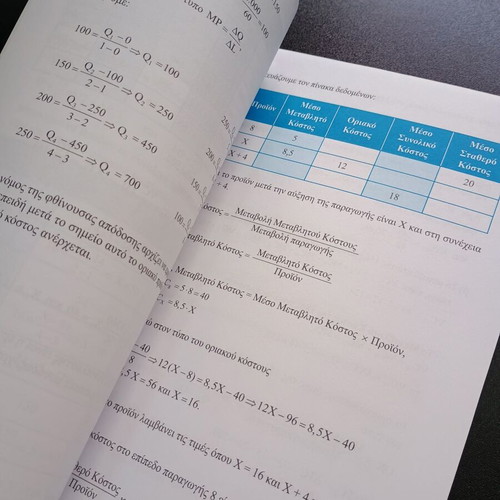 τύπο MP = ΔQ / ΔL
100 = Q₁ – 0 / 1 – 0 ⇒ Q₁ = 100
150 = Q₂ – 100 / 2 – 1 ⇒ Q₂ = 250
200 = Q₃ – 250 / 3 – 2 ⇒ Q₃ = 450
250 = Q₄ – 450 / 4 – 3 ⇒ Q₄ = 700
νόμος της φθίνουσας απόδοσης αρχίζει
μετά το σημείο αυτό το οριακό
κόστος ανέρχεται.
τον πίνακα δεδομένων:
Προϊόν Μέσο Μεταβλητό Κόστος Οριακό Κόστος Μέσο Συνολικό Κόστος Μέσο Σταθερό Κόστος
8 5 20
X 8,5 12
X + 4 18
το προϊόν μετά την αύξηση της παραγωγής είναι X και στη συνέχεια
+ 4.
Κόστος = Μεταβολή Μεταβλητού Κόστους / Μεταβολή παραγωγής
Κόστος = Μεταβλητό Κόστος / Προϊόν
Μεταβλητό Κόστος = Μέσο Μεταβλητό Κόστος × Προϊόν,
= 5 · 8 = 40
= 8,5 · X
στον τύπο του οριακού κόστους
– 40 / 8 ⇒ 12(X – 8) = 8,5X – 40 ⇒ 12X – 96 = 8,5X – 40
5X = 56 και X = 16.
προϊόν λαμβάνει τις τιμές όπου X = 16 και X + 4
κόστος στο επίπεδο παραγωγής 8
Κόστος
Προϊόν